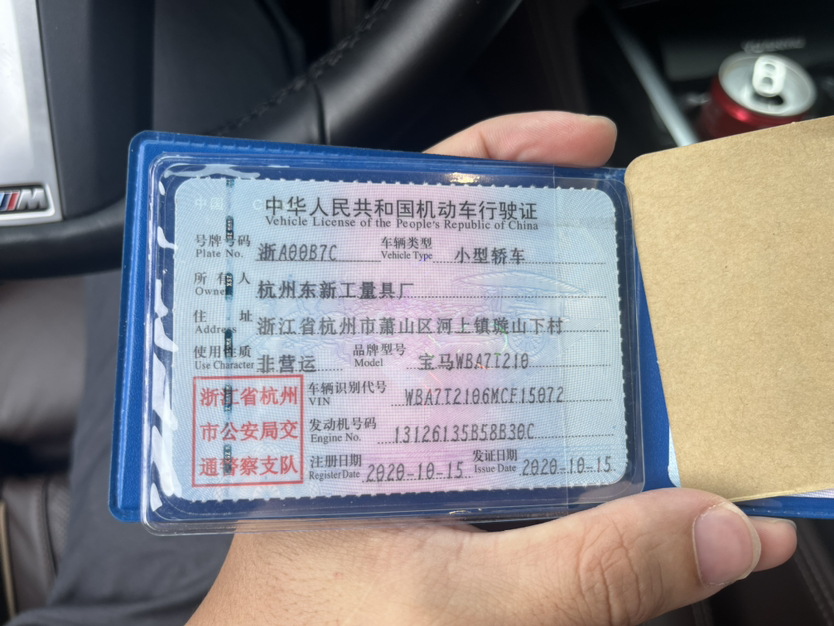 中国
中华人民共和国机动车行驶证
Vehicle License of the People's Republic of China
号牌号码 浙A00B7C 车辆类型 小型轿车
Plate No. Vehicle Type
所有人 杭州东新工量具厂
Owner
住址 浙江省杭州市萧山区河上镇璇山下村
Address
使用性质 非营运 品牌型号 宝马WBA7T210
Use Character Model
浙江省杭州
市公安局交
通警察支队
车辆识别代号 WBA7T2106MCF15072
VIN
发动机号码 13126135B58B30C
Engine No.
注册日期 2020-10-15 发证日期 2020-10-15
Register Date Issue Date
M